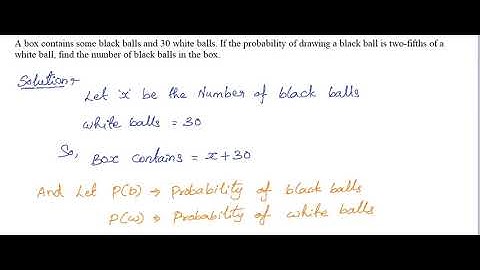 A box contains some black balls and 30 white balls. If the probability of drawing a black ball is two-fifths of a
white ball, find the number of black balls in the box.
Solution:-
Let 'x' be the Number of black balls
white balls = 30
So, Box contains = x+30
And Let P(b) → Probability of black balls
P(w) → Probability of white balls